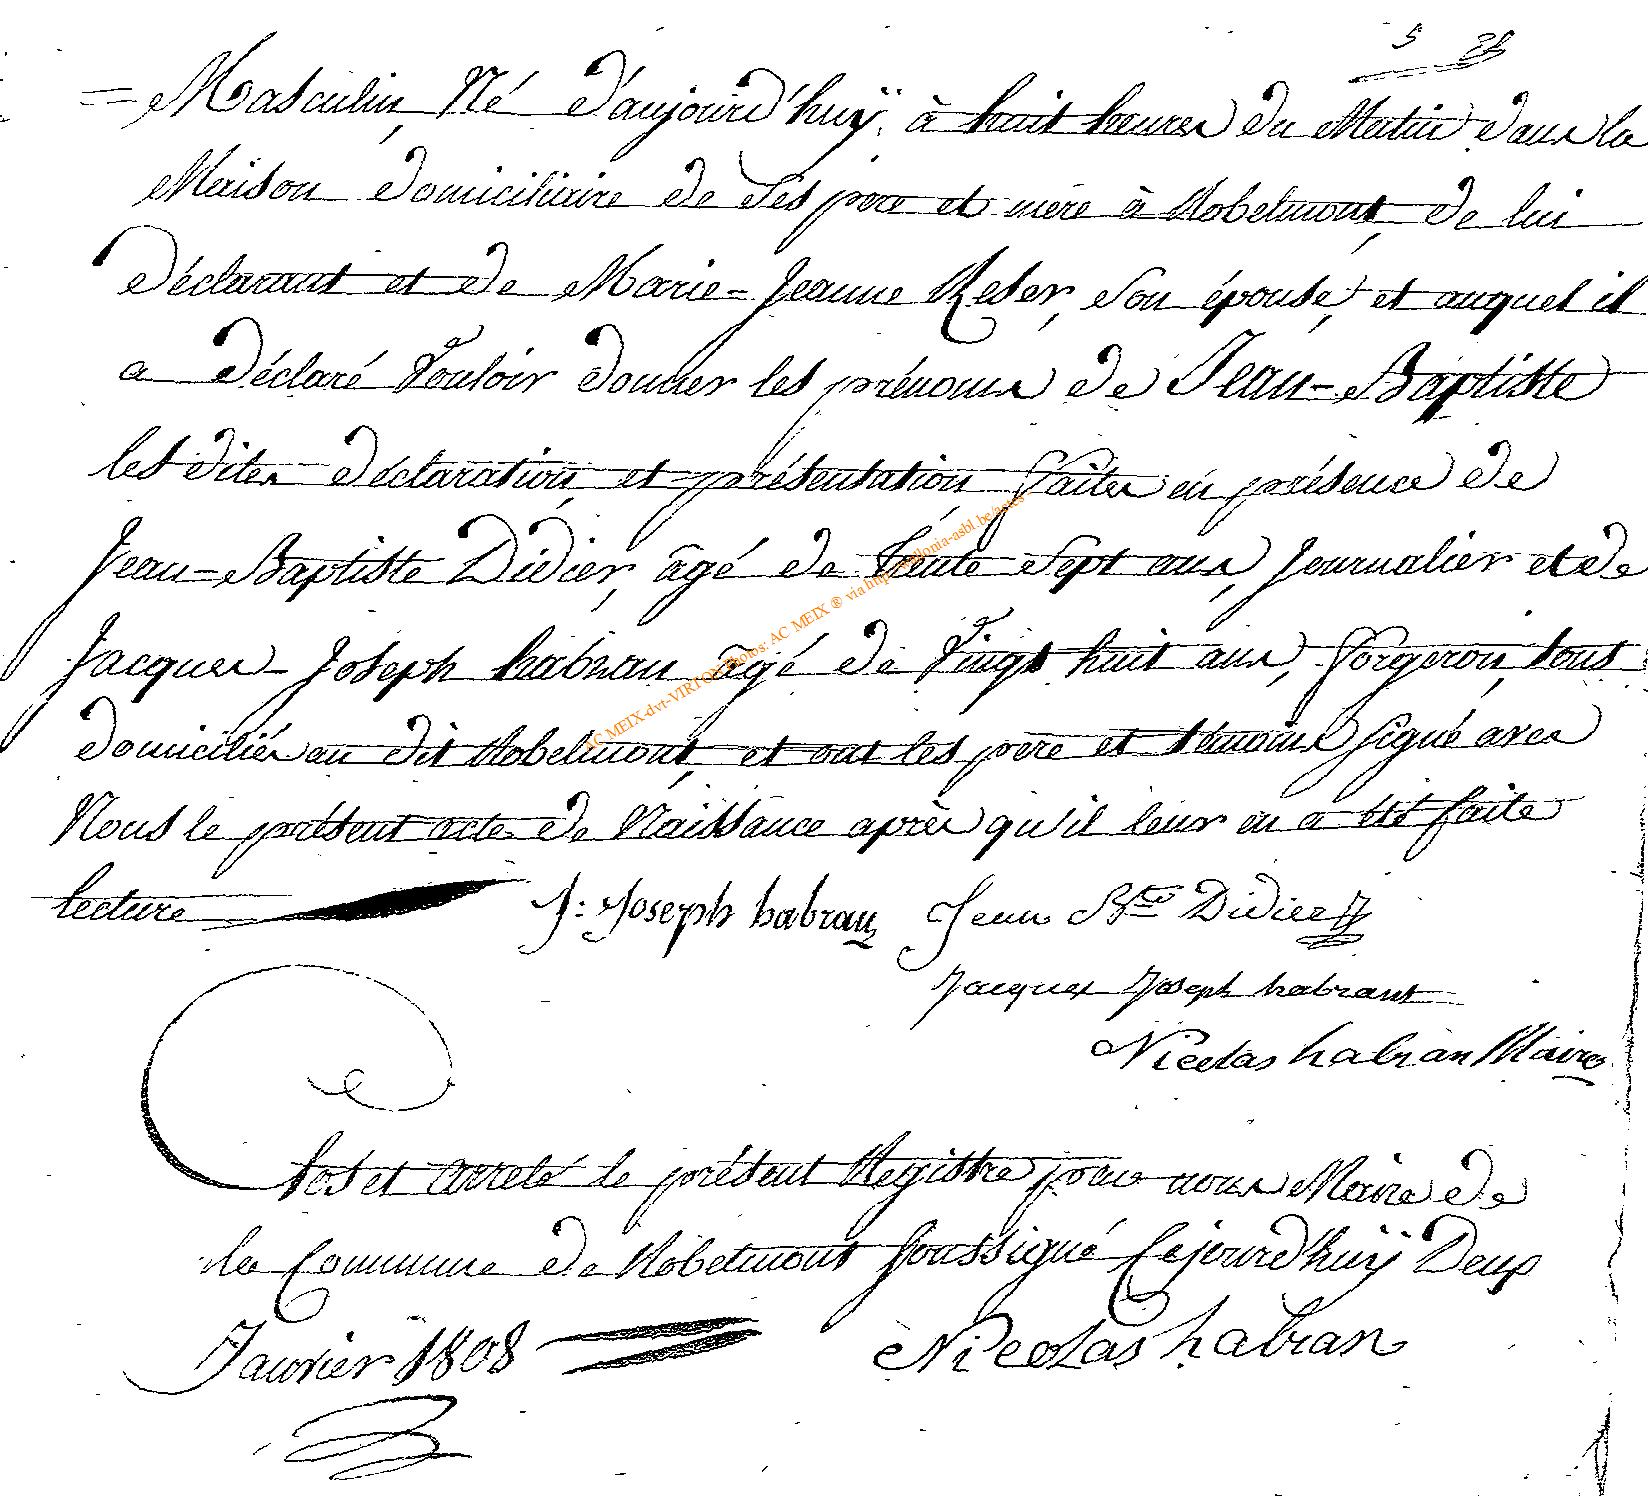 5
= Masculin, Né d'aujourd'huÿ, à huit heures du Matin dans la
Maison domiciliaire de Ses pere et mere à Robelmont, de lui
déclarant et de Marie-Jeanne Reser, son épouse, et auquel il
a déclaré Vouloir donner les prénoms de Jean-Baptiste
les dites déclaration, et présentation, faites en présence de
Jean-Baptiste Didier, âgé de trente Sept ans, Journalier et de
Jacques-Joseph habran âgé de Vingt huit ans, forgeron, tous
domiciliés au dit Robelmont, et ont les pere et témoins signé avec
Nous le présent acte de Naissance après qu'il leur en a été faite
lecture J: Joseph habran Jean Bte Didier
Jacques Joseph habrant
Nicolas habran Maire
Clos et arreté le présent Registre par nous Maire de
la Commune de Robelmont soussigné Cejourd'huÿ Deux
Janvier 1808 Nicolas habran
AC MEIX-dvt-VIRTON Photos: AC MEIX ® via